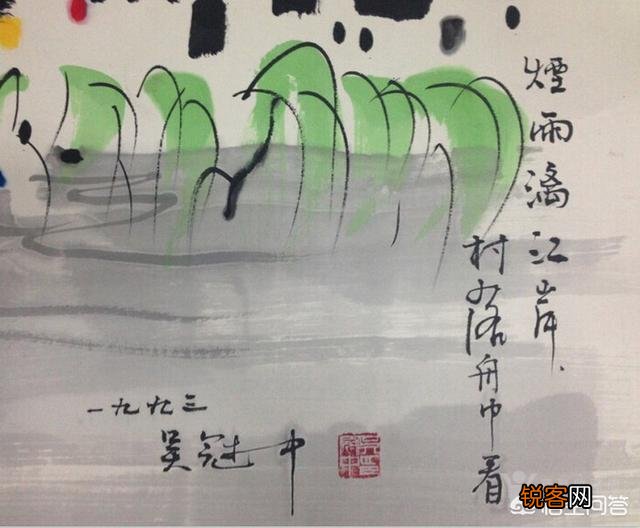 煙雨漓江岸.
村落舟中看
一九九三
吴冠中
锐客网
悟空问答